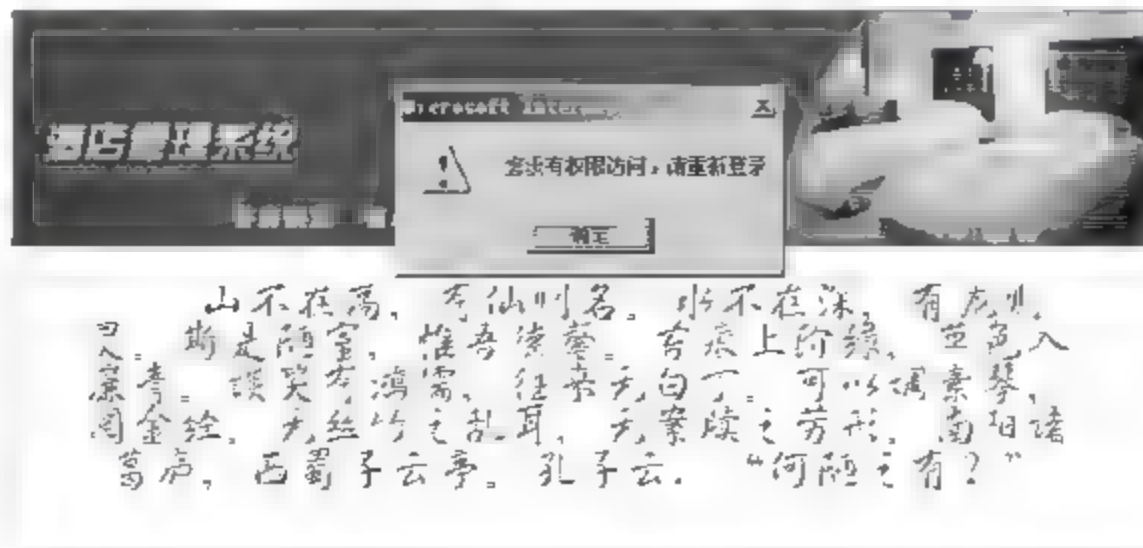 Microsoft Inter
酒店管理系统
您没有权限访问，请重新登录
确定
山不在高，有仙则名。水不在深，有龙则
灵。斯是陋室，惟吾德馨。苔痕上阶绿，草色入
帘青。谈笑有鸿儒，往来无白丁。可以调素琴，
阅金经。无丝竹之乱耳，无案牍之劳形。南阳诸
葛庐，西蜀子云亭。孔子云：“何陋之有？”